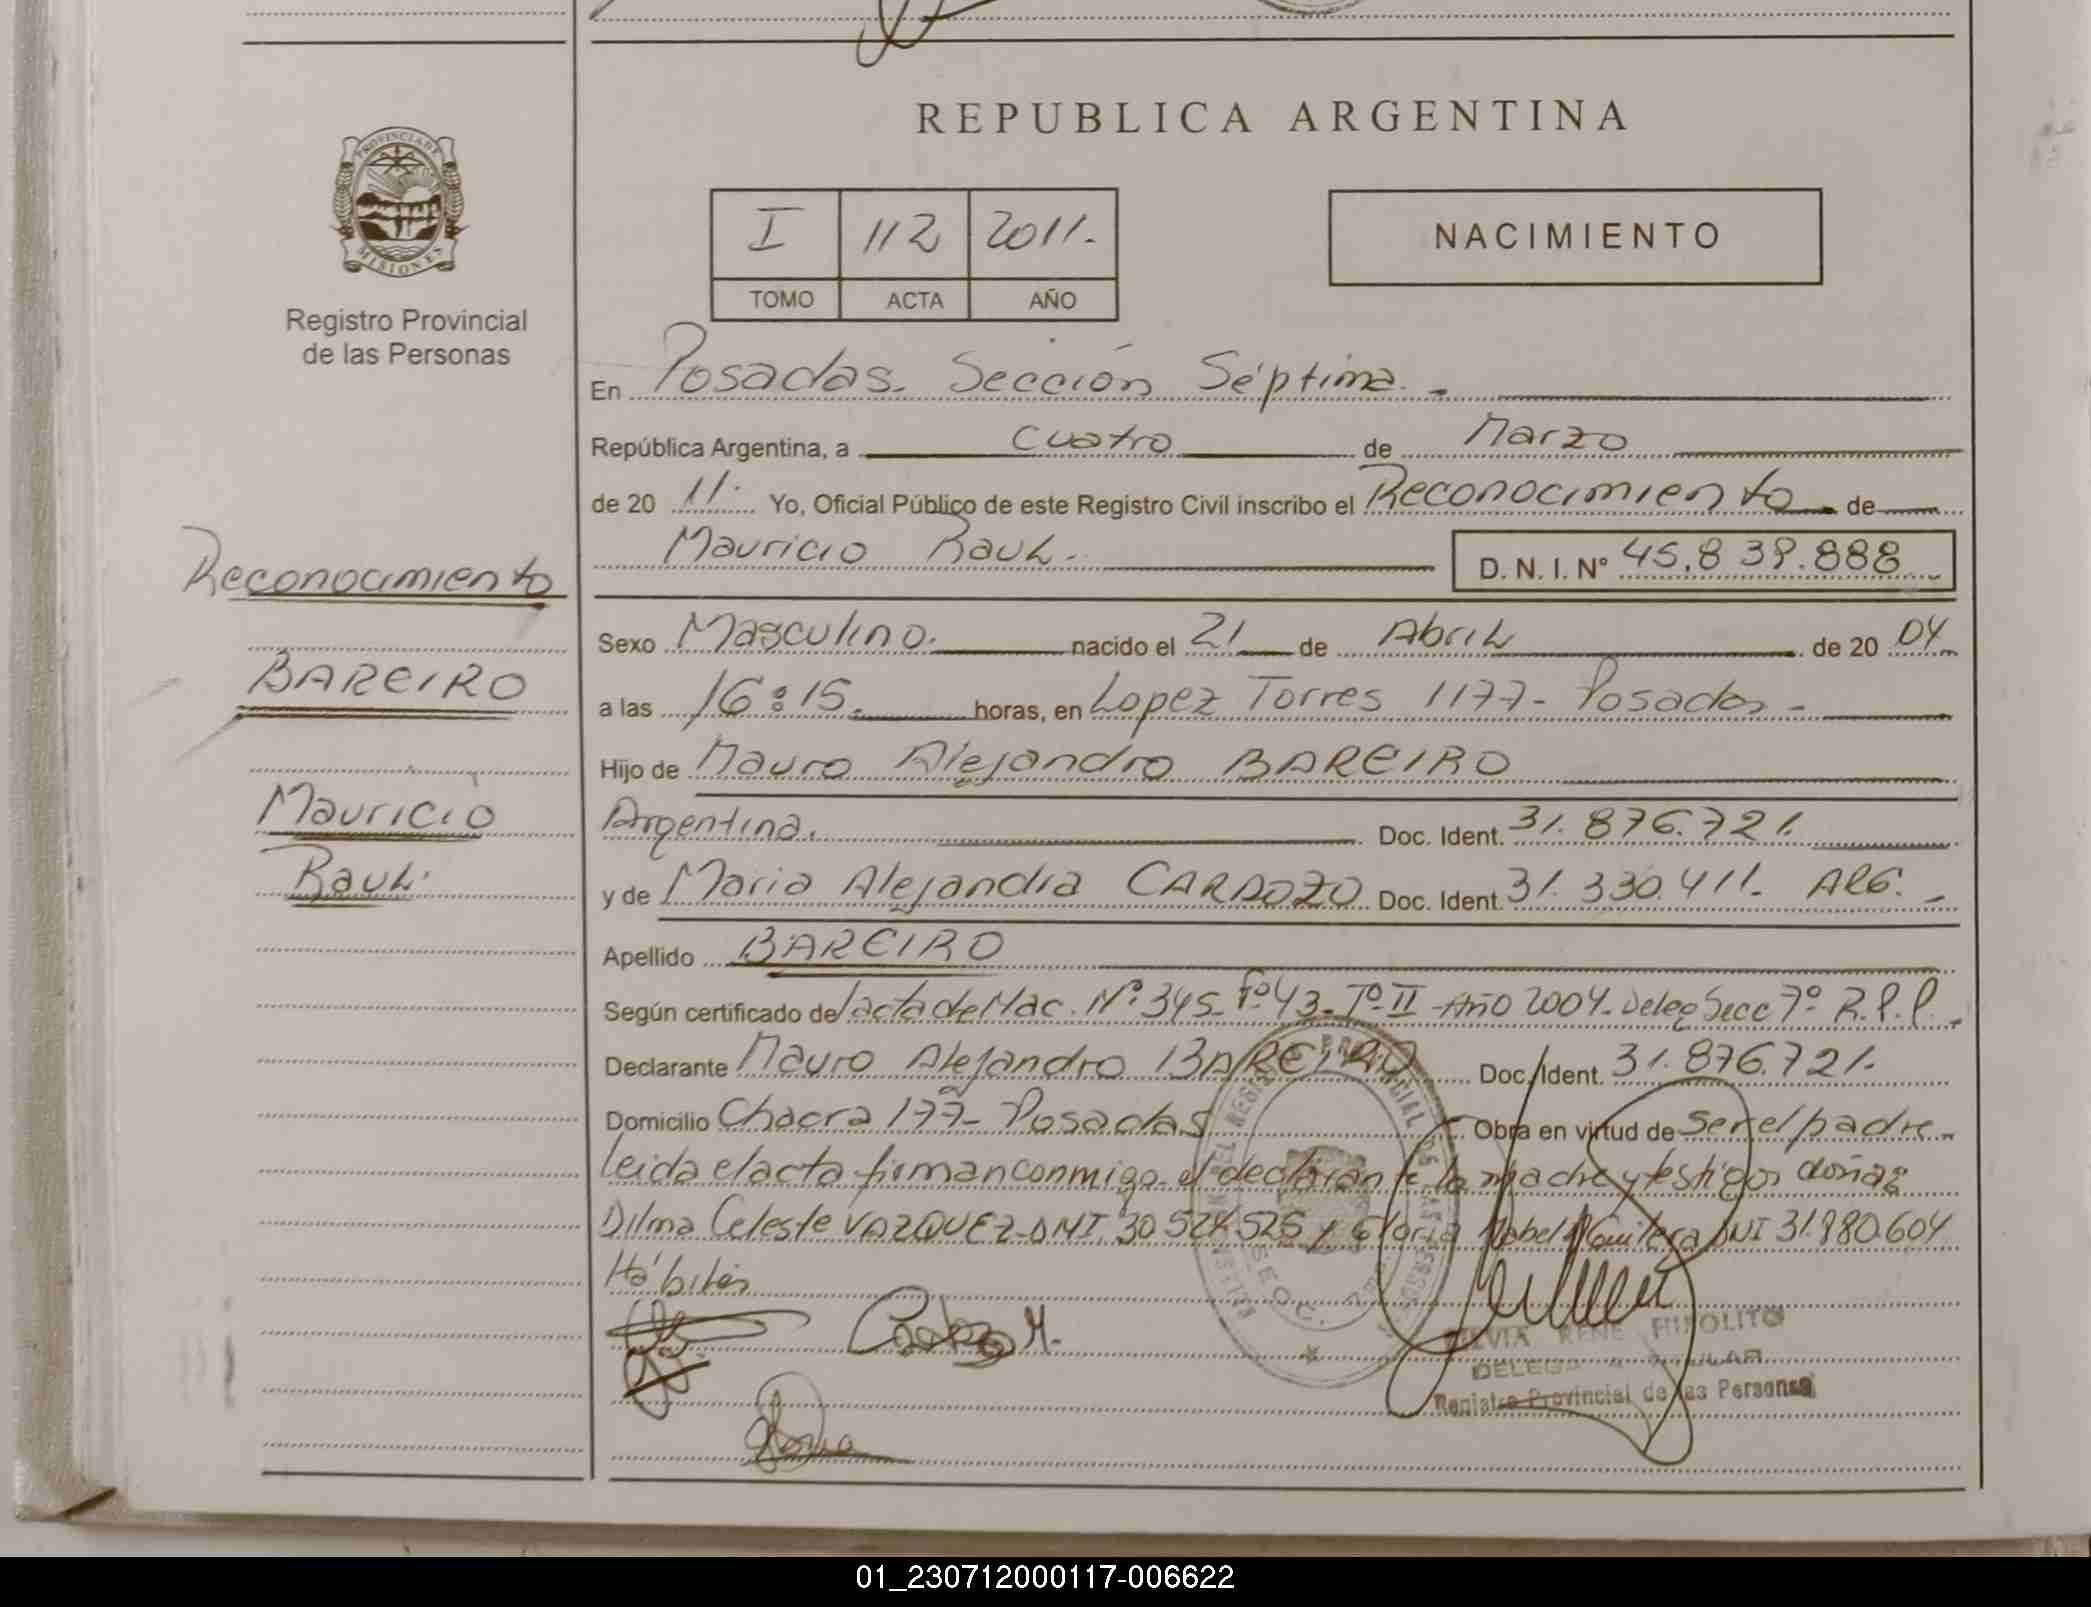 REPUBLICA ARGENTINA
PROVINCIA DE
MISIONES
Registro Provincial
de las Personas
I 112 2011.
TOMO ACTA AÑO
NACIMIENTO
En Posadas. Sección Séptima.
República Argentina, a Cuatro de Marzo
de 20 11. Yo, Oficial Público de este Registro Civil inscribo el Reconocimiento de
Mauricio Raul. D. N. I. N° 45.839.888
Reconocimiento
BAREIRO
Mauricio
Raul.
Sexo Masculino. nacido el 21 de Abril de 20 04
a las 16:15. horas, en Lopez Torres 1177- Posadas -
Hijo de Mauro Alejandro BAREIRO
Argentina. Doc. Ident. 31.876.721.
y de Maria Alejandra CARDOZO Doc. Ident. 31.330.411. ARG. -
Apellido BAREIRO
Según certificado de acta de Nac. N° 345- F° 43- T° II - Año 2004- Deleg Secc 7° R.P.P.
Declarante Mauro Alejandro BAREIRO Doc. Ident. 31.876.721.
Domicilio Chacra 177- Posadas Obra en virtud de ser el padre
leida el acta firman conmigo el declarante la madre y testigos doñas
Dilma Celeste VAZQUEZ- DNI. 30 524 525 y Gloria Mabel Aguilera DNI 31.980.604
Hábiles
Cardozo M.
Gloria
SILVIA RENE HIPOLITO
DELEGADA TITULAR
Registro Provincial de las Personas
01_230712000117-006622